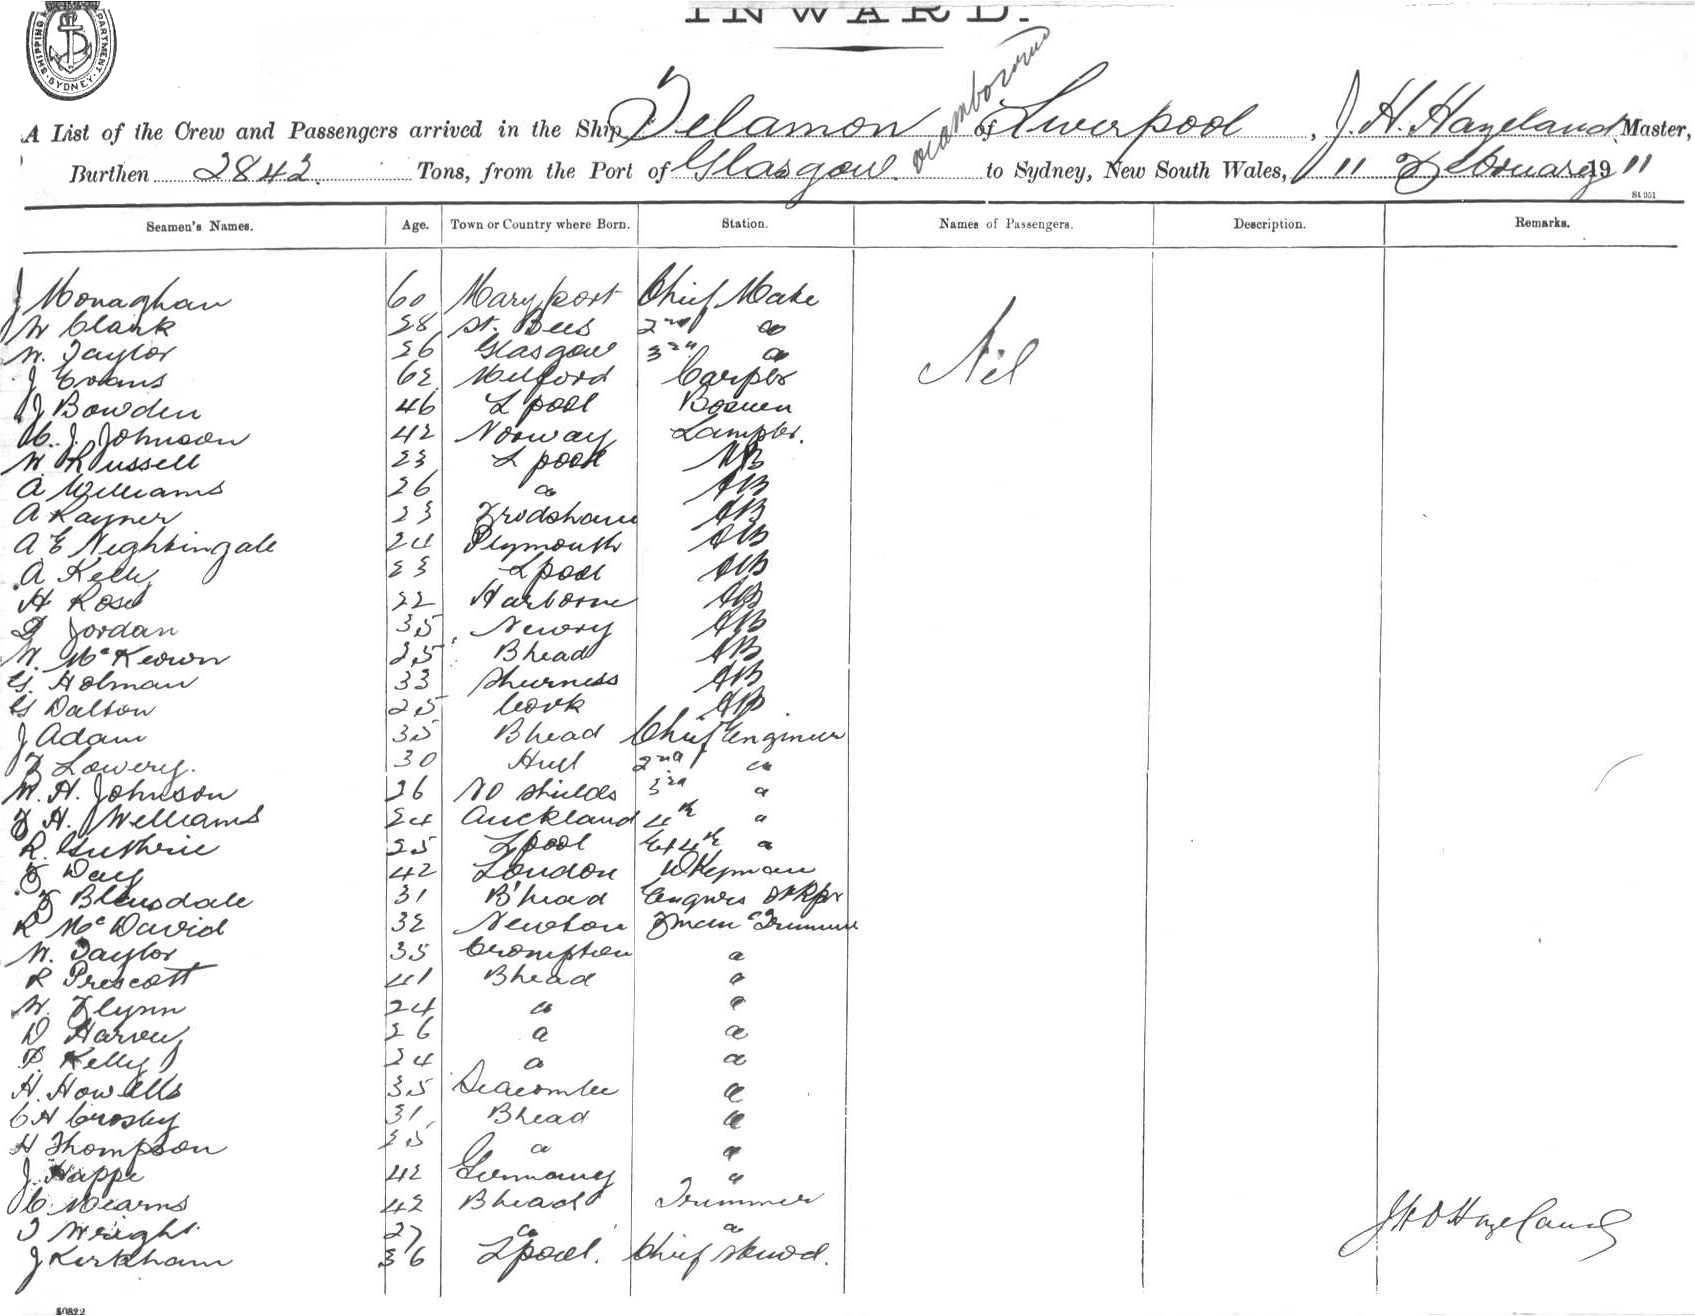 SHIPPING DEPARTMENT SYDNEY
INWARD.
A List of the Crew and Passengers arrived in the Ship Telamon of Liverpool, J. H. Hazeland Master,
Burthen 2842 Tons, from the Port of Glasgow to Sydney, New South Wales, 11 February 1911
84051
Seamen's Names. Age. Town or Country where Born. Station. Names of Passengers. Description. Remarks.
J Monaghan 60 Maryport Chief Mate
W Clark 28 St. Bees 2nd do
W. Taylor 26 Glasgow 3rd do
J Evans 62 Milford Carptr
J Bowden 46 Lpool Bosuen Nil
C. J. Johnson 42 Norway Lamptr.
W Russell 23 Lpool AB
A Williams 26 do AB
A Rayner 23 Frodsham AB
A E Nightingale 24 Plymouth AB
A Kelly 23 Lpool AB
H Rose 22 Harborne AB
D Jordan 35 Newry AB
W. McKeown 25 Bhead AB
G. Holman 33 Sheerness AB
G Dalton 25 Cork AB
J Adam 35 Bhead Chief Engineer
F Lowery. 30 Hull 2nd do
W. H. Johnson 26 No Shields 3rd do
F H. Williams 24 Auckland 4th do
R. Guthrie 25 Lpool Ex 4th do
F Day 42 London Dkeyman
F Bleasdale 31 B'head Engnrs StKpr
R McDavid 32 Newton Fman & Trimmer
W. Taylor 35 Crompton do
R Prescott 41 Bhead do
W. Flynn 24 do do
D Harvey 26 do do
P. Kelly 24 do do
H. Howells 35 Seacombe do
C H Crosby 31 Bhead do
H Thompson 25 do do
J. Happe 42 Germany do
C. Mearns 42 Bhead Trimmer
T Wright 27 do do
J Kirkham 36 Lpool. Chief Stewd.
J H D Hazeland